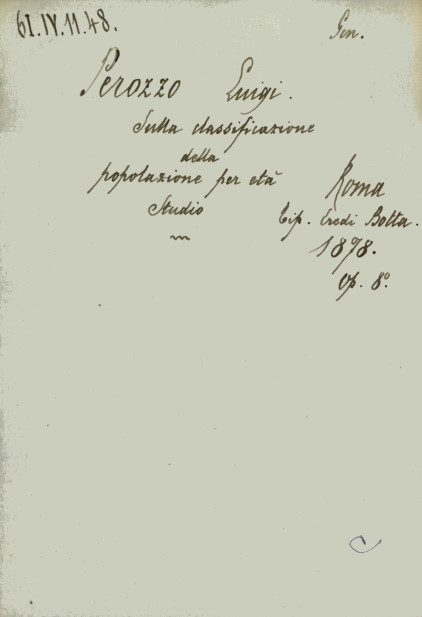 61.IV.11.48.
Gen.
Perozzo Luigi.
Sulla classificazione
della
popolazione per età
Studio
Roma
Tip. Eredi Botta.
1878.
Op. 8°.